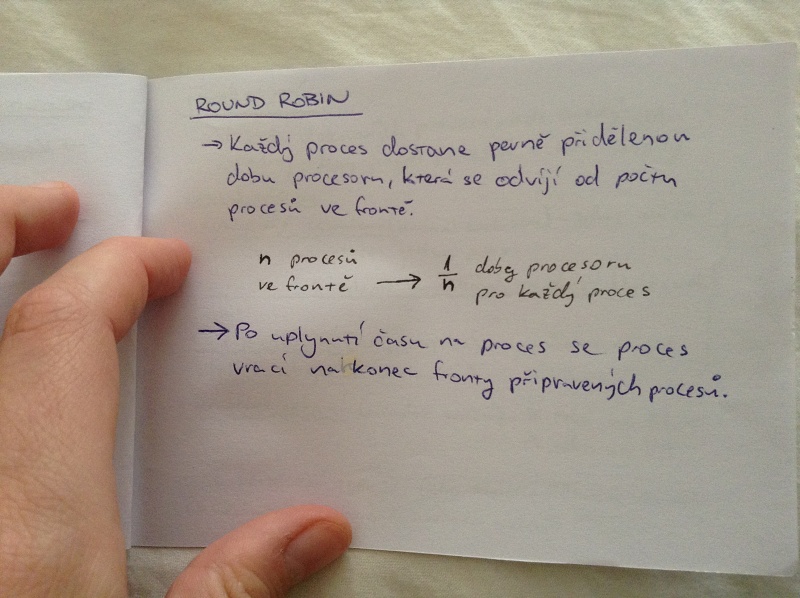 ROUND ROBIN
→ Každý proces dostane pevně přidělenou
dobu procesoru, která se odvíjí od počtu
procesů ve frontě.
n procesů
ve frontě → 1/n doby procesoru
pro každý proces
→ Po uplynutí času na proces se proces
vrací na konec fronty připravených procesů.